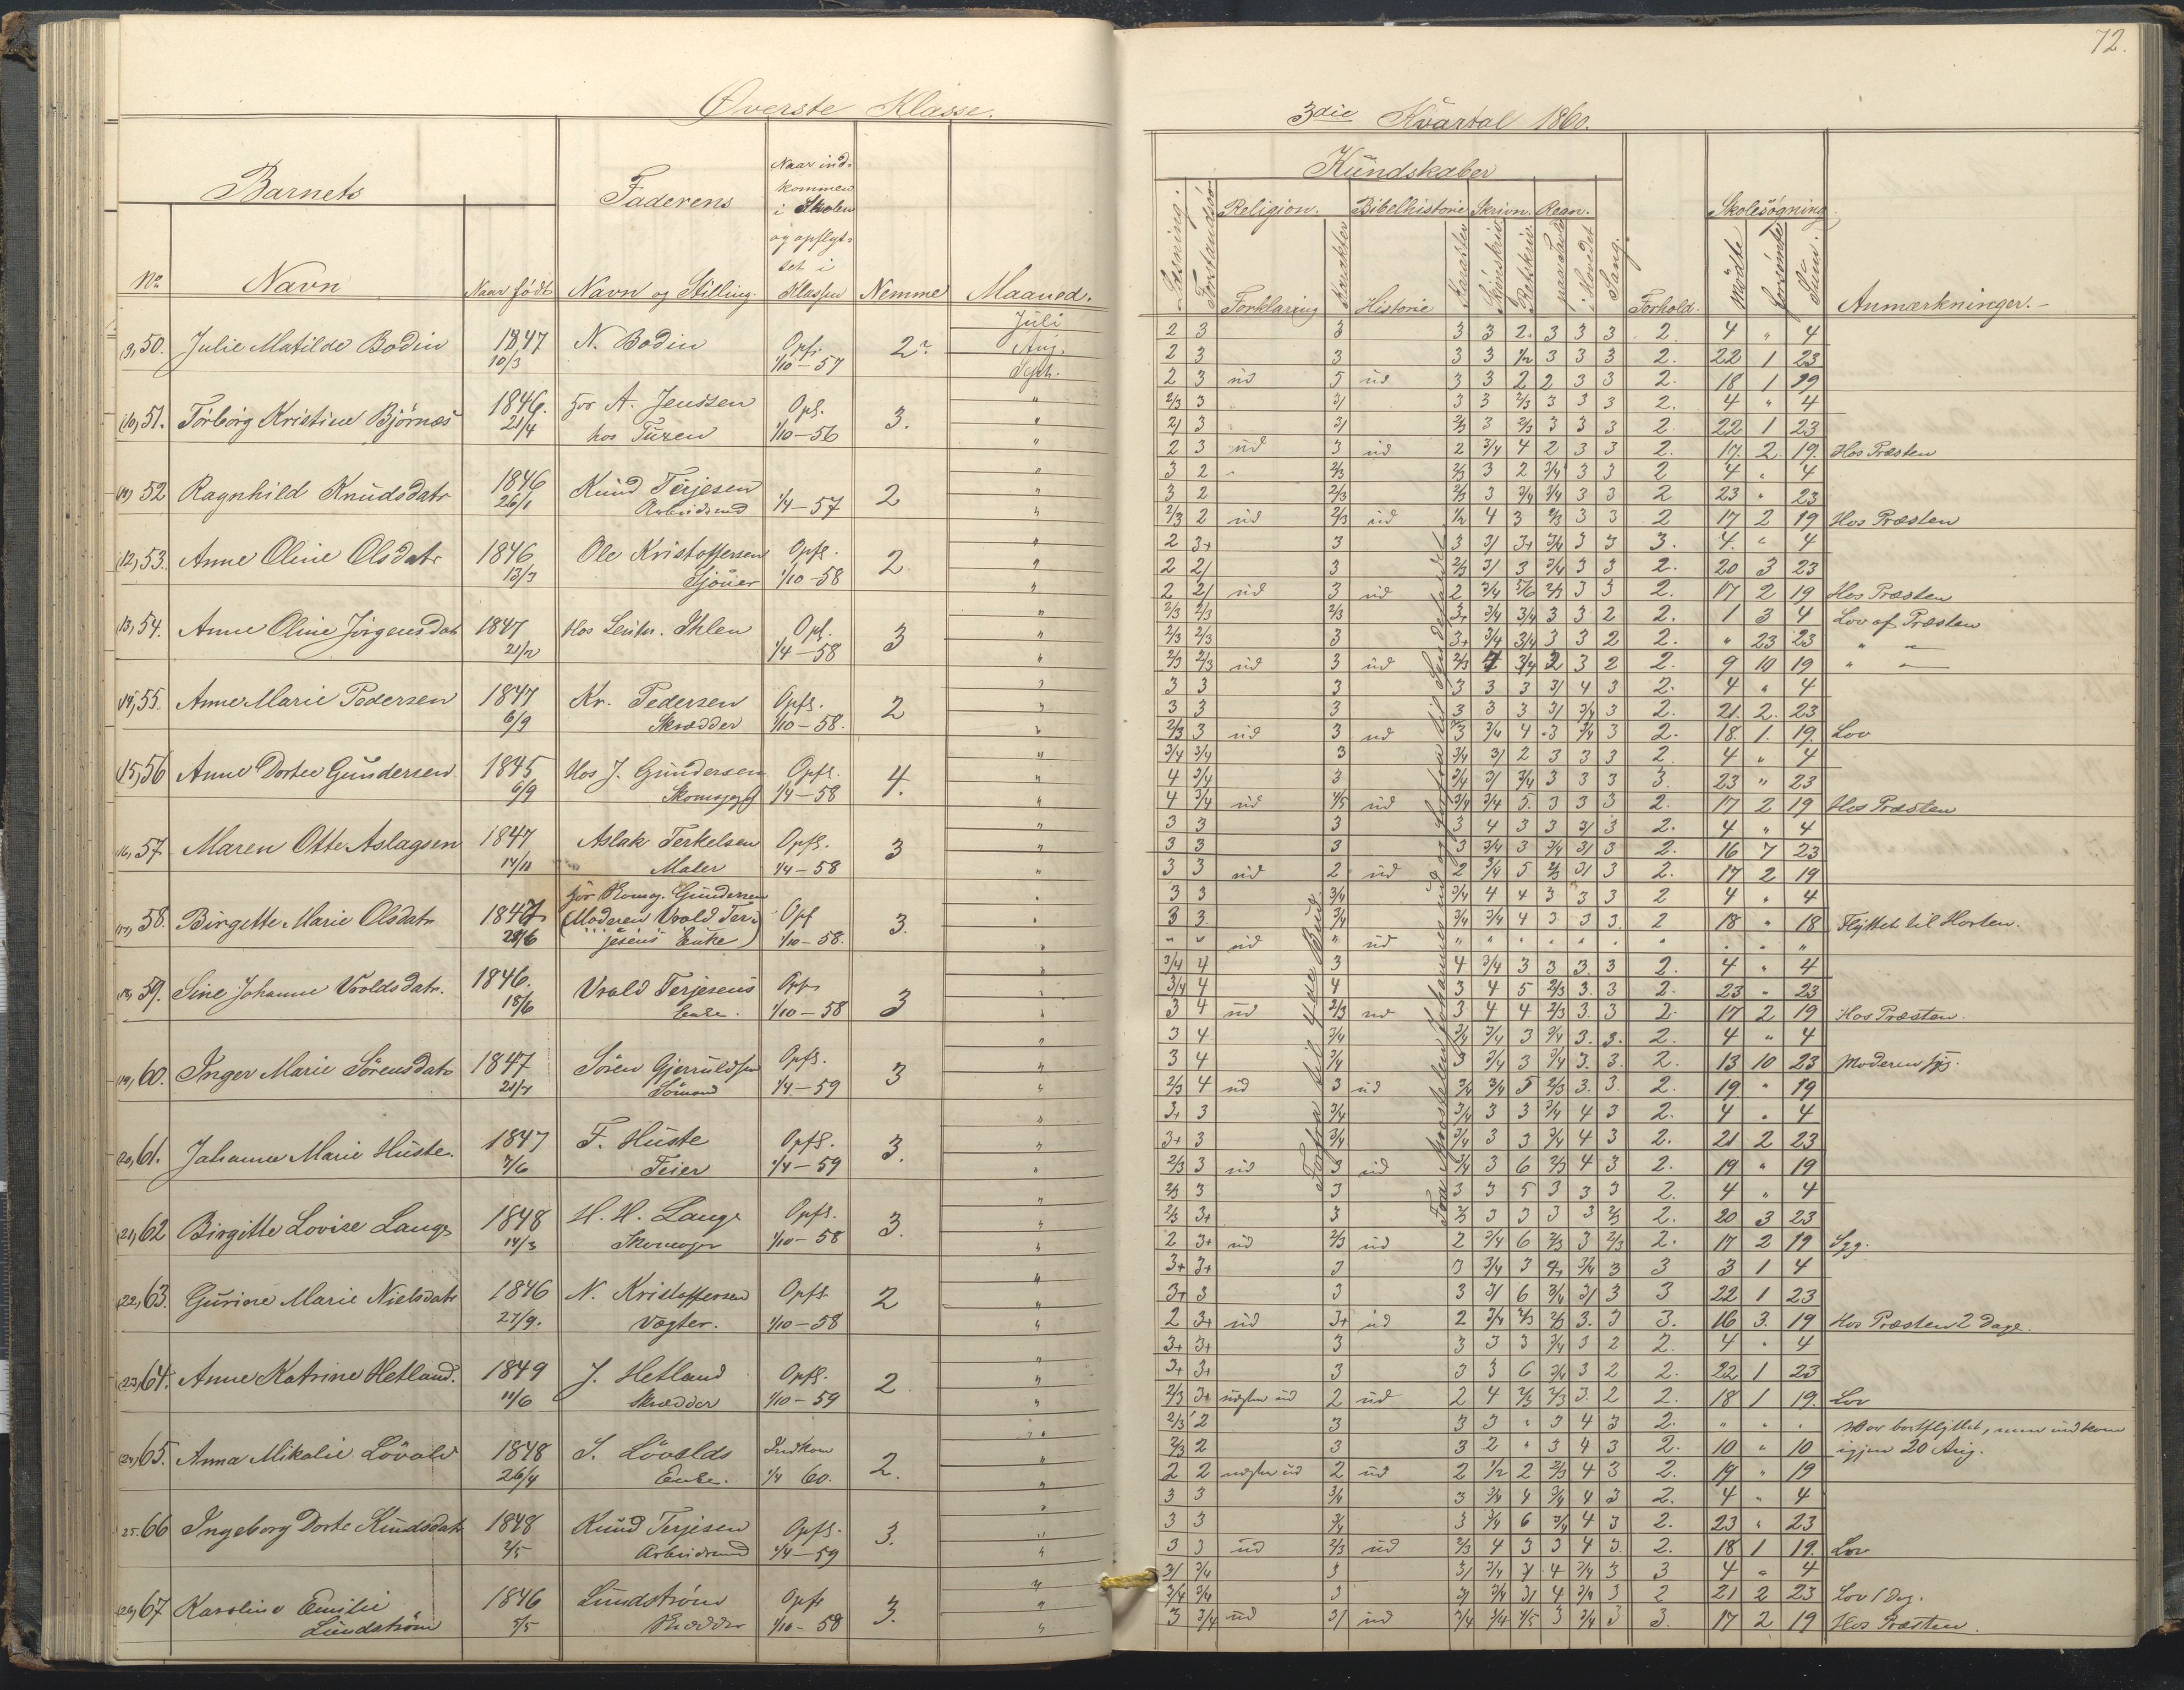 72.
Øverste Klasse.
3die Kvartal 1860.
Barnets
Faderens
Naar ind-
kommen
i Skolen
og opflyt-
tet i
Klassen
No
Navn
Naar født
Navn og Stilling
Nemme
Maaned.
Kundskaber
Læsning.
Forstandsöv
Religion.
Forklaring
Karakter
Bibelhistorie
Historie
Karakter
Skrivn.
Skjönskriv
Retskriv.
Regn.
paa Tavle
i Hovedet
Sang.
Forhold.
Skolesøgning
Mödte
Forsömte
Sum.
Anmærkninger.
Juli
Aug.
Sept.
9, 50. Julie Matilde Bodin 1847 10/3 N. Bodin Opfl. 1/10-57 2
2 3 3 3 3 2 3 3 3 2. 4 " 4
2 3 3 3 3 1/2 3 3 3 2. 22 1 23
2 3 ud 5 ud 3 3 2 2 3 3 2. 18 1 19
10, 51. Torborg Kristine Björnæs 1846. 21/4 for A. Jenssen hos Tuxen Opfl. 1/10-56 3.
2/3 3 3/ 3 3 2/3 3 3 3 2. 4 " 4
2/ 3 3/ 2/3 3 2/3 3 3 3 2. 22 1 23
2 3 ud 3 ud 2 3/4 4 2 3 3 2. 17. 2 19. Hos Præsten
11, 52 Ragnhild Knudsdatr 1846 26/1 Knud Terjesen Arbeidsmd 1/4-57 2
3 2 2/3 2/3 3 2 3/4 3 3 2 4 " 4
3 2 2/3 2/3 3 3/4 3/4 3 3 2 23 " 23
2/3 2 ud 2/3 ud 1/2 4 3 2/3 3 3 2 17 2 19 Hos Præsten
12, 53. Anne Oline Olsdatr 1846 13/3 Ole Kristoffersen Sjouer Opfl. 1/10-58 2
2 3+ 3 3 3/ 3+ 3/4 3 3 3. 4. " 4
2 2/ 3 2/3 3/ 3 3/4 3 3 2. 20 3 23
2 2/ ud 3 ud 2 3/4 5/6 2/3 3 3 2. 17 2 19 Hos Præsten
13, 54. Anne Oline Jörgensdatr 1847 21/2 Hos Leutn. Ihlen Opfl. 1/4-58 3
2/3 2/3 2/3 3+ 3/4 3/4 3 3 2 2. 1 3 4 Lov af Præsten
2/3 2/3 3 3+ 3/4 3/4 3 3 2 2. " 23 23 " "
2/3 2/3 ud 3 ud 2/3 4 3/4 2 3 2 2. 9 10 19 " "
14, 55. Anne Marie Pedersen 1847 6/9 Kr. Pedersen Skrædder Opfl. 1/10-58. 2
3 3 3 3 3 3 3/ 4 3 2. 4 " 4
3 3 3 3 3 3 3/ 3/4 3 2. 21. 2. 23
2/3 3 ud 3 ud 3 3/4 4 3 3/4 3 2. 18. 1. 19. Lov
15, 56 Anne Dortee Gundersen 1845 6/9 Hos J. Gundersen Skomager Opfl. 1/4-58 4.
3/4 3/4 3 3/4 3/ 2 3 3 3 2. 4 " 4
4 3/4 3 3/4 3/ 3/4 3 3 3 3. 23 " 23
4 3/4 ud 4/5 ud 3/4 3/4 5. 3 3 3 2. 17 2 19 Hos Præsten
16, 57. Maren Otte Aslagsen 1847 14/11 Aslak Terkelsen Maler Opfl. 1/4-58 3
3 3 3 3 4 3 3 3/ 3 2. 4 " 4
3 3 3 3 3/4 3 3/4 3/ 3 2. 16 7 23
3 3 ud 2 ud 2 3/4 5 2/3 3/ 3 2. 17 2 19
17, 58. Birgette Marie Olsdatr 1847 28/6 for Skomg. Gundersen (Moderen Vrold Terjesens Enke) Opfl 1/10-58. 3.
3 3 3/4 3/4 4 4 3 3 3 2 4 " 4
3 3 3/4 3/4 3/4 4 3 3 3. 2 18 " 18 Flyttet til Horten.
" " ud " ud " " " " " " " " " "
18, 59. Sine Johanne Vroldsdatr. 1846. 18/6 Vrold Terjesens Enke. Opfl 1/10-58 3
3/4 4 3 4 3/4 3 3 3. 3 2. 4 " 4
3/4 4 4 3 4 5 2/3 3. 3 2. 23 " 23
3 4 ud 2/3 ud 3 4 4 2/3 3. 3 2. 17 2 19 Hos Præsten.
19, 60. Inger Marie Sörensdatr 1847 21/7 Sören Gjeruldsen Sömand Opfl. 1/4-59 3
3 4 3/4 3/4 3/4 3 3/4 3. 3. 2. 4 " 4
3 4 3/4 3 3/4 3 3/4 3. 3. 2. 13 10 23 Moderen syg.
2/3 4 ud 3 ud 3/4 3/4 5 2/3 3. 3. 2. 19 " 19
20, 61. Johanne Marie Huste. 1847 7/6 F. Huste Feier Opfl. 1/4-59 3.
3+ 3 3/4 3/4 3 3 3/4 4 3 2. 4 " 4
3+ 3 3/4 3/4 3 3 3/4 4 3 2. 21 2 23
2/3 3 ud 3 ud 3/4 3 6 2/3 4 3 2. 19 " 19
21, 62 Birgitte Lovise Lange 1848 14/3 H. H. Lange Skomager Opfl. 1/10-58 3.
2/3 3 3 3 3 5 3 3 3 2. 4 " 4
2/3 3+ 3 2/3 3 3 3 3 2/3 2. 20 3 23
2 3+ ud 2/3 ud 2 3/4 6 2/3 3 2/3 2. 17 2 19 Syg.
22, 63. Gurine Marie Nielsdatr 1846 27/9. N. Kristoffersen Vægter. Opfl. 1/10-58 2
3+ 3+ 3 3 3/4 3 4+ 3/4 3 3 3 1 4
3+ 3 3 3 3/ 6 3/4 3/ 3 3 22 1 23
2 3+ ud 3+ ud 2 3/4 2/3 2/3 3. 3 3. 16 3. 19 Hos Præsten 2 Dage.
23, 64. Anne Katrine Hetland. 1849 11/6 J. Hetland Skrædder Opfl. 1/10-59 2
3+ 3+ 3 3 3 3 3/4 3 2 2. 4 " 4
3+ 3+ 3 3 3 6 3/4 3 2 2. 22 1 23
2/3 3+ udgten ud 2 ud 2 4 2/3 2/3 3. 2 2. 18 1 19. Lov
24, 65. Anna Mikalie Lövold 1848 26/4 S. Lövolds Enke. Indkom 1/4 60. 2.
2/3 2 3 3 3 " 3 4 3 2. " " " Var bortflyttet, men indkom
2/3 2 3 3 2 " 3 4 3 2. 10 " 10 igjen 20 Aug.
2 2 udgten ud 2 ud 2 1/2 2 2/3 4 3 2. 19 " 19
25. 66 Ingeborg Dorte Knudsdatr 1848 2/5 Knud Terjesen Arbeidsmd Opfl. 1/4-59 3.
3 3 3/4 3 3/4 4 3/4 4 3 2. 4 " 4
3 3 3/4 3 3/4 6 3/4 4 3 2. 23 " 23
3 3 ud 2/3 ud 2/3 4 3 3 4 3. 2. 18 1 19. Lov
26, 67 Karoline Emilie Lundström 1846 5/5 Lundström Skrædder Opfl 1/10-58 3.
3/ 3/4 3 3/ 3/4 4 4 3/4 3 3 4 " 4
3/4 3/4 3 3/ 3/4 3/ 4 3/4 3 2 21 2 23 Lov 1 Dag.
3 3/4 ud 3/ ud 3/4 3/4 4/5 3 3/4 3 3. 17 2 19 Hos Præsten.